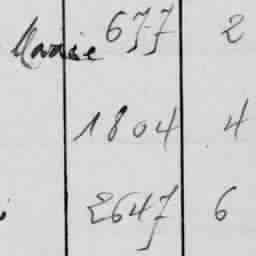 677 2
1804 4
2647 6